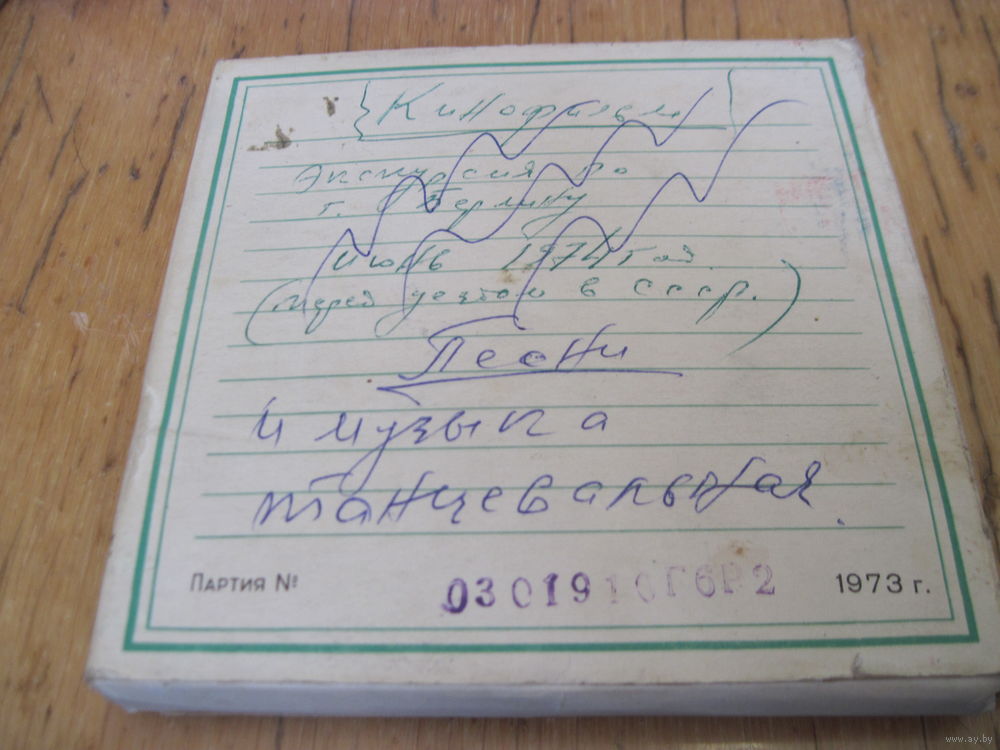 Кинофильм
Экскурсия по
г. Берлину
июнь 1974 год
(перед уездом в СССР.)
Песни
и музыка
танцевальная.
Партия № 0301910Г6Р2 1973 г.
www.ay.by